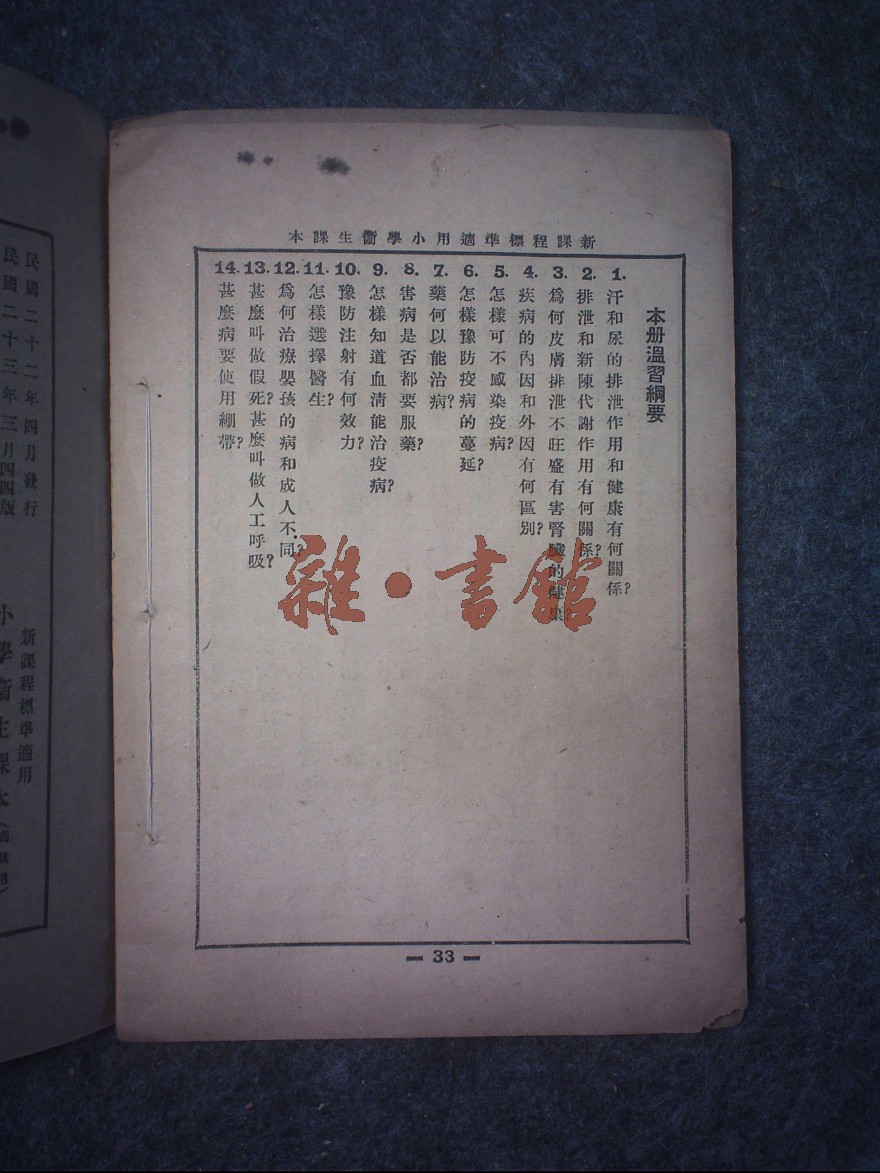 新課程標準適用小學衞生課本
本册溫習綱要
1. 汗和尿的排泄作用和健康有何關係?
2. 排泄和新陳代謝作用有何關係?
3. 爲何皮膚排泄不旺盛有害腎臟的健康?
4. 疾病的內因和外因有何區別?
5. 怎樣可不感染疫病?
6. 怎樣豫防疫病的蔓延?
7. 藥何以能治病?
8. 害病是否都要服藥?
9. 怎樣知道血淸能治疫病?
10. 豫防注射有何效力?
11. 怎樣選擇醫生?
12. 爲何治療嬰孩的病和成人不同?
13. 甚麼叫做假死?甚麼叫做人工呼吸?
14. 甚麼病要使用綳帶?
33
雜·書館
民國二十二年四月發行
民國二十三年三月四四版
新課程標準適用
小學衞生課本